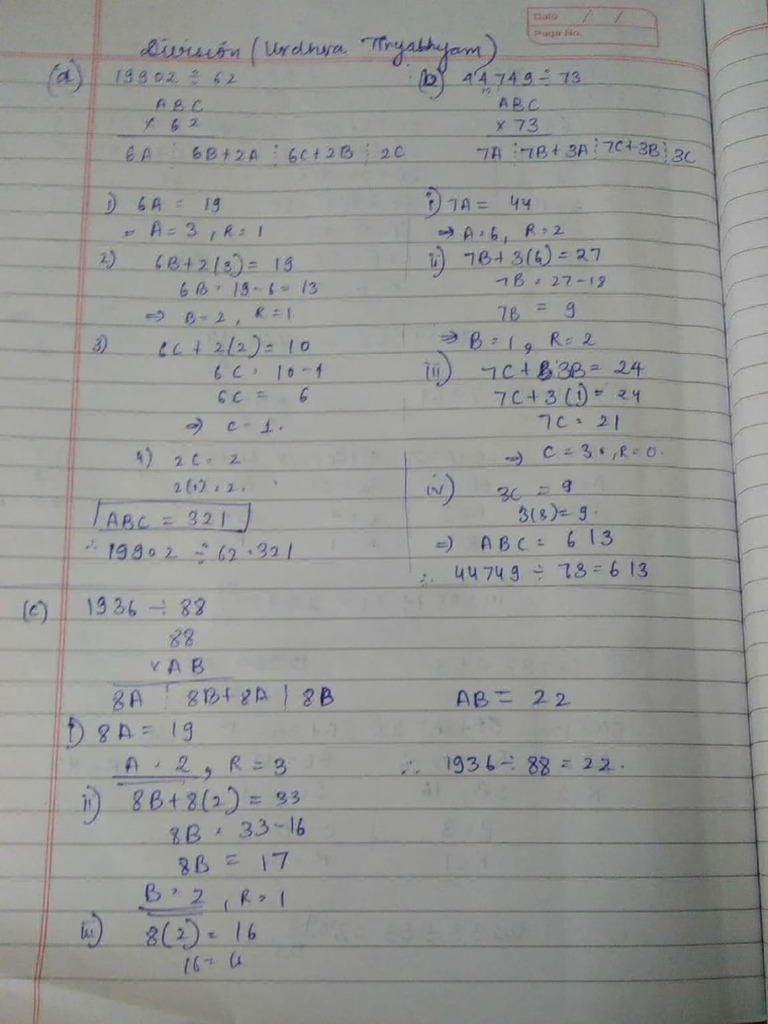 Date / /
Page No.
Division (Urdhva Tiryabhyam)
(a) 19902 ÷ 62
ABC
× 62
6A ⋮ 6B+2A ⋮ 6C+2B ⋮ 2C
1) 6A = 19
= A=3, R=1
2) 6B+2(3) = 19
6B = 19-6 = 13
⇒ B=2, R=1
3) 6C + 2(2) = 10
6C = 10-4
6C = 6
⇒ C=1.
4) 2C = 2
2(1) = 2.
ABC = 321
∴ 19902 ÷ 62 = 321
(b) 44749 ÷ 73
ABC
× 73
7A ⋮ 7B+3A ⋮ 7C+3B ⋮ 3C
i) 7A = 44
⇒ A=6, R=2
ii) 7B+3(6) = 27
7B = 27-18
7B = 9
⇒ B=1, R=2
iii) 7C+3B = 24
7C+3(1) = 24
7C = 21
⇒ C=3, R=0.
iv) 3C = 9
3(3) = 9.
⇒ ABC = 613
∴ 44749 ÷ 73 = 613
(c) 1936 ÷ 88
88
× AB
8A | 8B+8A | 8B
i) 8A = 19
A = 2, R=3
ii) 8B+8(2) = 33
8B = 33-16
8B = 17
B = 2, R=1
iii) 8(2) = 16
AB = 22
∴ 1936 ÷ 88 = 22.